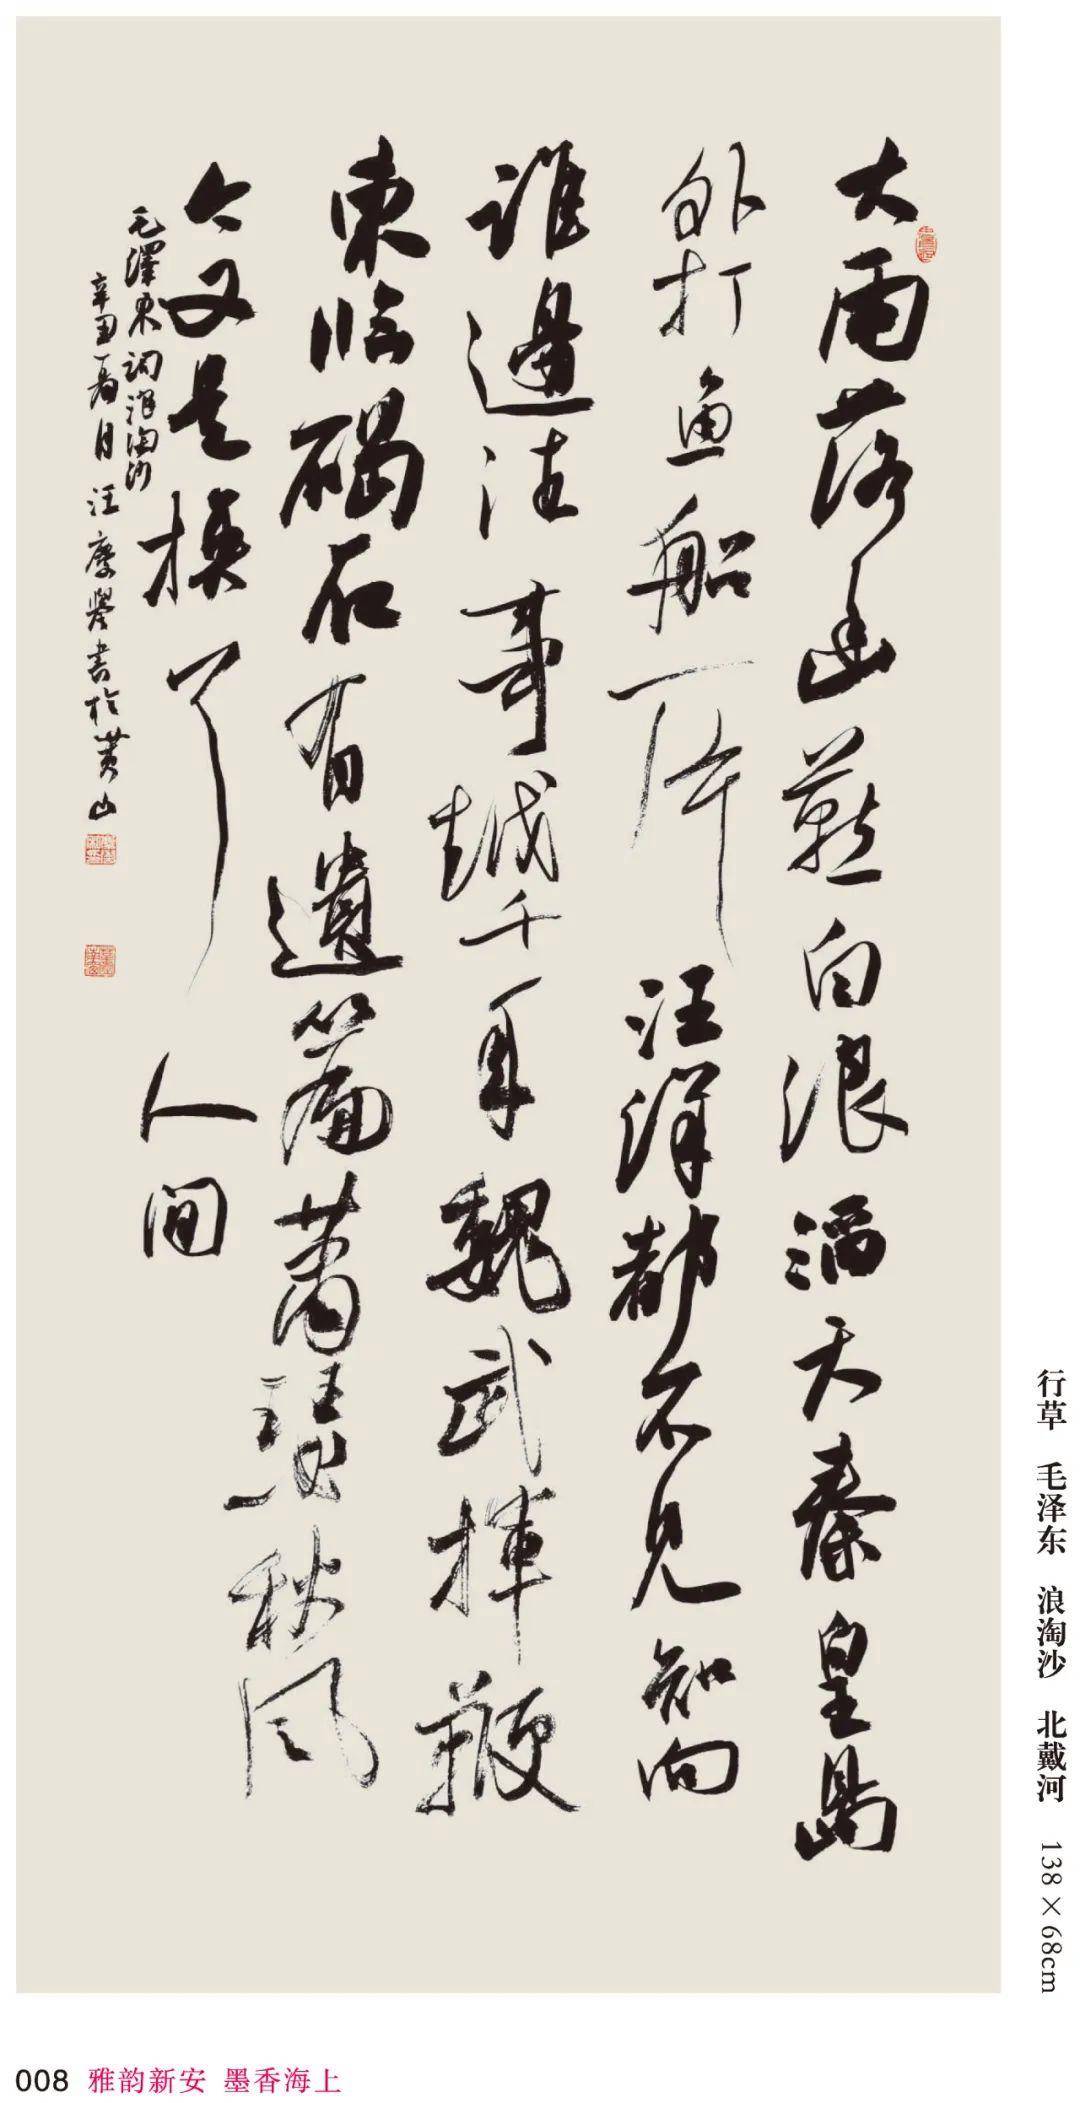 大雨落幽燕白浪滔天秦皇島
外打鱼船一片汪洋都不見知向
誰邊往事越千年魏武揮鞭
東臨碣石有遺篇蕭瑟秋風
今又是換了人間
毛澤東詞浪淘沙
辛丑夏月汪慶書於黄山
行草 毛泽东 浪淘沙 北戴河 138×68cm
008 雅韵新安 墨香海上